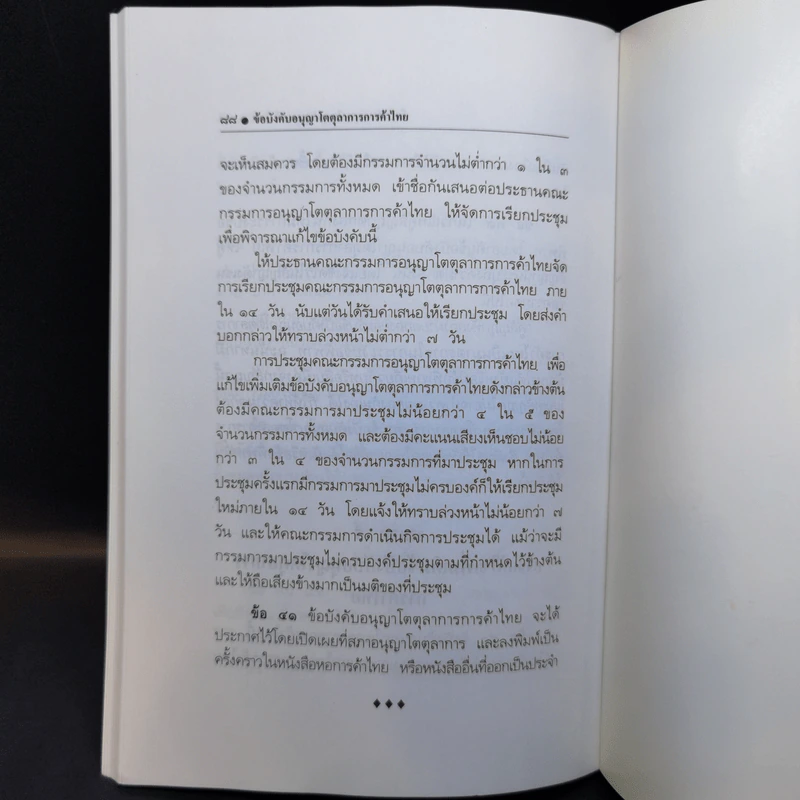 ๘๘ ● ข้อบังคับอนุญาโตตุลาการการค้าไทย
จะเห็นสมควร โดยต้องมีกรรมการจำนวนไม่ต่ำกว่า ๑ ใน ๓
ของจำนวนกรรมการทั้งหมด เข้าชื่อกันเสนอต่อประธานคณะ
กรรมการอนุญาโตตุลาการการค้าไทย ให้จัดการเรียกประชุม
เพื่อพิจารณาแก้ไขข้อบังคับนี้
ให้ประธานคณะกรรมการอนุญาโตตุลาการการค้าไทยจัด
การเรียกประชุมคณะกรรมการอนุญาโตตุลาการการค้าไทย ภาย
ใน ๑๔ วัน นับแต่วันได้รับคำเสนอให้เรียกประชุม โดยส่งคำ
บอกกล่าวให้ทราบล่วงหน้าไม่ต่ำกว่า ๗ วัน
การประชุมคณะกรรมการอนุญาโตตุลาการการค้าไทย เพื่อ
แก้ไขเพิ่มเติมข้อบังคับอนุญาโตตุลาการการค้าไทยดังกล่าวข้างต้น
ต้องมีคณะกรรมการมาประชุมไม่น้อยกว่า ๔ ใน ๕ ของ
จำนวนกรรมการทั้งหมด และต้องมีคะแนนเสียงเห็นชอบไม่น้อย
กว่า ๓ ใน ๔ ของจำนวนกรรมการที่มาประชุม หากในการ
ประชุมครั้งแรกมีกรรมการมาประชุมไม่ครบองค์ก็ให้เรียกประชุม
ใหม่ภายใน ๑๔ วัน โดยแจ้งให้ทราบล่วงหน้าไม่น้อยกว่า ๗
วัน และให้คณะกรรมการดำเนินกิจการประชุมได้ แม้ว่าจะมี
กรรมการมาประชุมไม่ครบองค์ประชุมตามที่กำหนดไว้ข้างต้น
และให้ถือเสียงข้างมากเป็นมติของที่ประชุม
ข้อ ๔๑ ข้อบังคับอนุญาโตตุลาการการค้าไทย จะได้
ประกาศไว้โดยเปิดเผยที่สภาอนุญาโตตุลาการ และลงพิมพ์เป็น
ครั้งคราวในหนังสือหอการค้าไทย หรือหนังสืออื่นที่ออกเป็นประจำ
♦♦♦